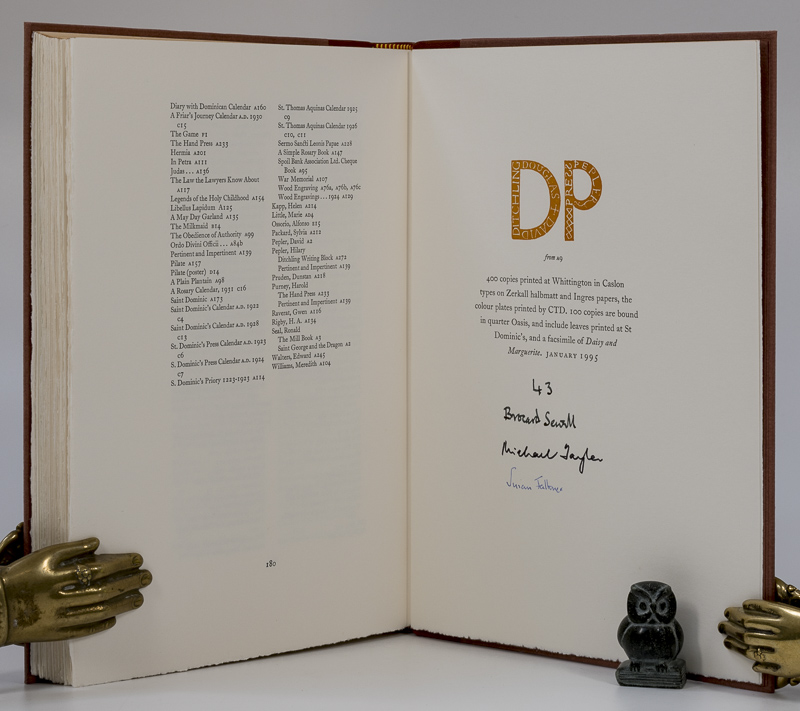 Diary with Dominican Calendar A160
A Friar's Journey Calendar A.D. 1930
C15
The Game F1
The Hand Press A233
Hermia A201
In Petra A111
Judas . . . A136
The Law the Lawyers Know About
A117
Legends of the Holy Childhood A154
Libellus Lapidum A125
A May Day Garland A135
The Milkmaid E14
The Obedience of Authority A99
Ordo Divini Officii . . . A84b
Pertinent and Impertinent A139
Pilate A157
Pilate (poster) D14
A Plain Plantain A98
A Rosary Calendar, 1931 C16
Saint Dominic A175
Saint Dominic's Calendar A.D. 1922
C4
Saint Dominic's Calendar A.D. 1928
C13
St. Dominic's Press Calendar A.D. 1923
C6
S. Dominic's Press Calendar A.D. 1924
C7
S. Dominic's Priory 1223-1923 A114
St. Thomas Aquinas Calendar 1925
C9
St. Thomas Aquinas Calendar 1926
C10, C11
Sermo Sancti Leonis Papae A228
A Simple Rosary Book A147
Spoil Bank Association Ltd. Cheque
Book A95
War Memorial A107
Wood Engraving A76a, A76b, A76c
Wood Engravings . . . 1924 A129
Kapp, Helen A214
Little, Marie A04
Ososrio, Alfonso E15
Packard, Sylvia A212
Pepler, David A2
Pepler, Hilary
Ditchling Writing Block A272
Pertinent and Impertinent A139
Pruden, Dunstan A218
Purney, Harold
The Hand Press A233
Pertinent and Impertinent A139
Raverat, Gwen A126
Rigby, H. A. A134
Seal, Ronald
The Mill Book A5
Saint George and the Dragon A2
Walters, Edward A245
Williams, Meredith A104
180
DITCHLING DOUGLAS + DAVID
PRESS PEPLER
from A9
400 copies printed at Whittington in Caslon
types on Zerkall halbmatt and Ingres papers, the
colour plates printed by CTD. 100 copies are bound
in quarter Oasis, and include leaves printed at St
Dominic's, and a facsimile of Daisy and
Marguerite. JANUARY 1995
43
Brocard Sewell
Michael Taylor
Susan Falkner